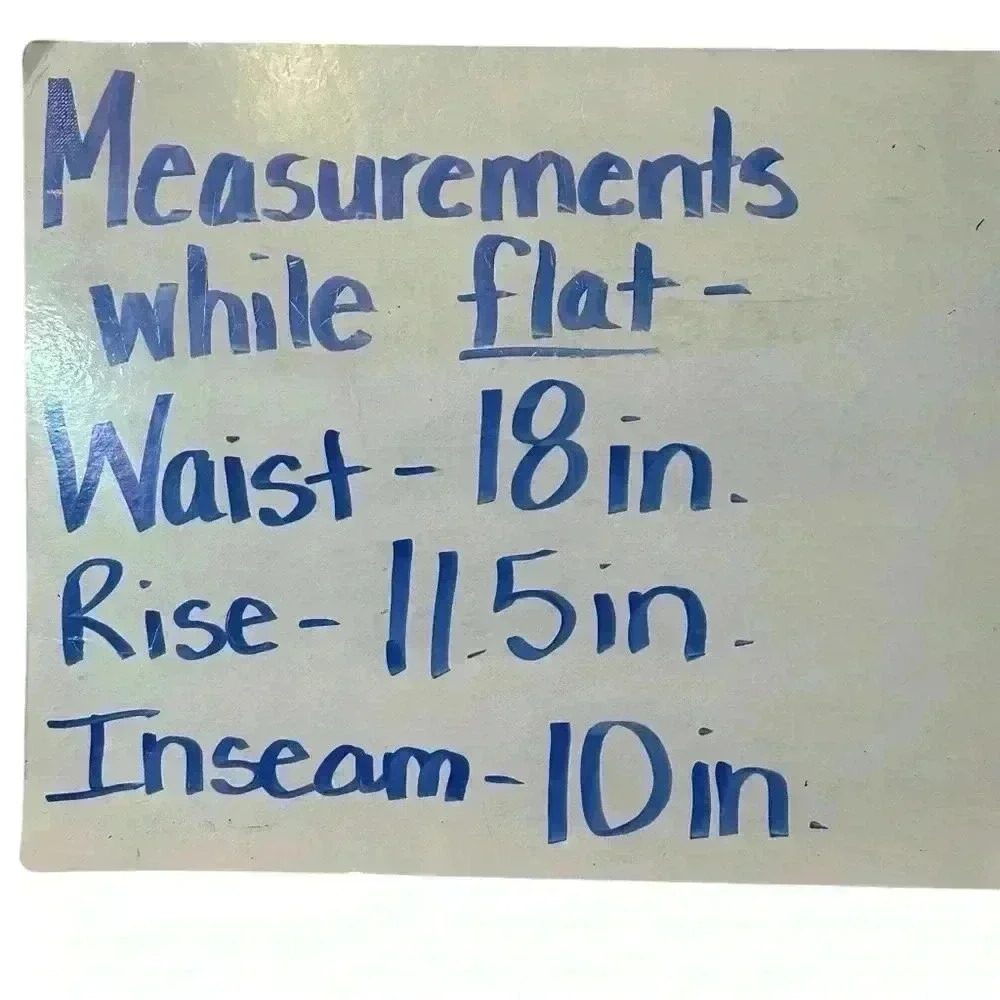 Measurements
while flat-
Waist - 18 in.
Rise - 11.5 in.
Inseam - 10 in.